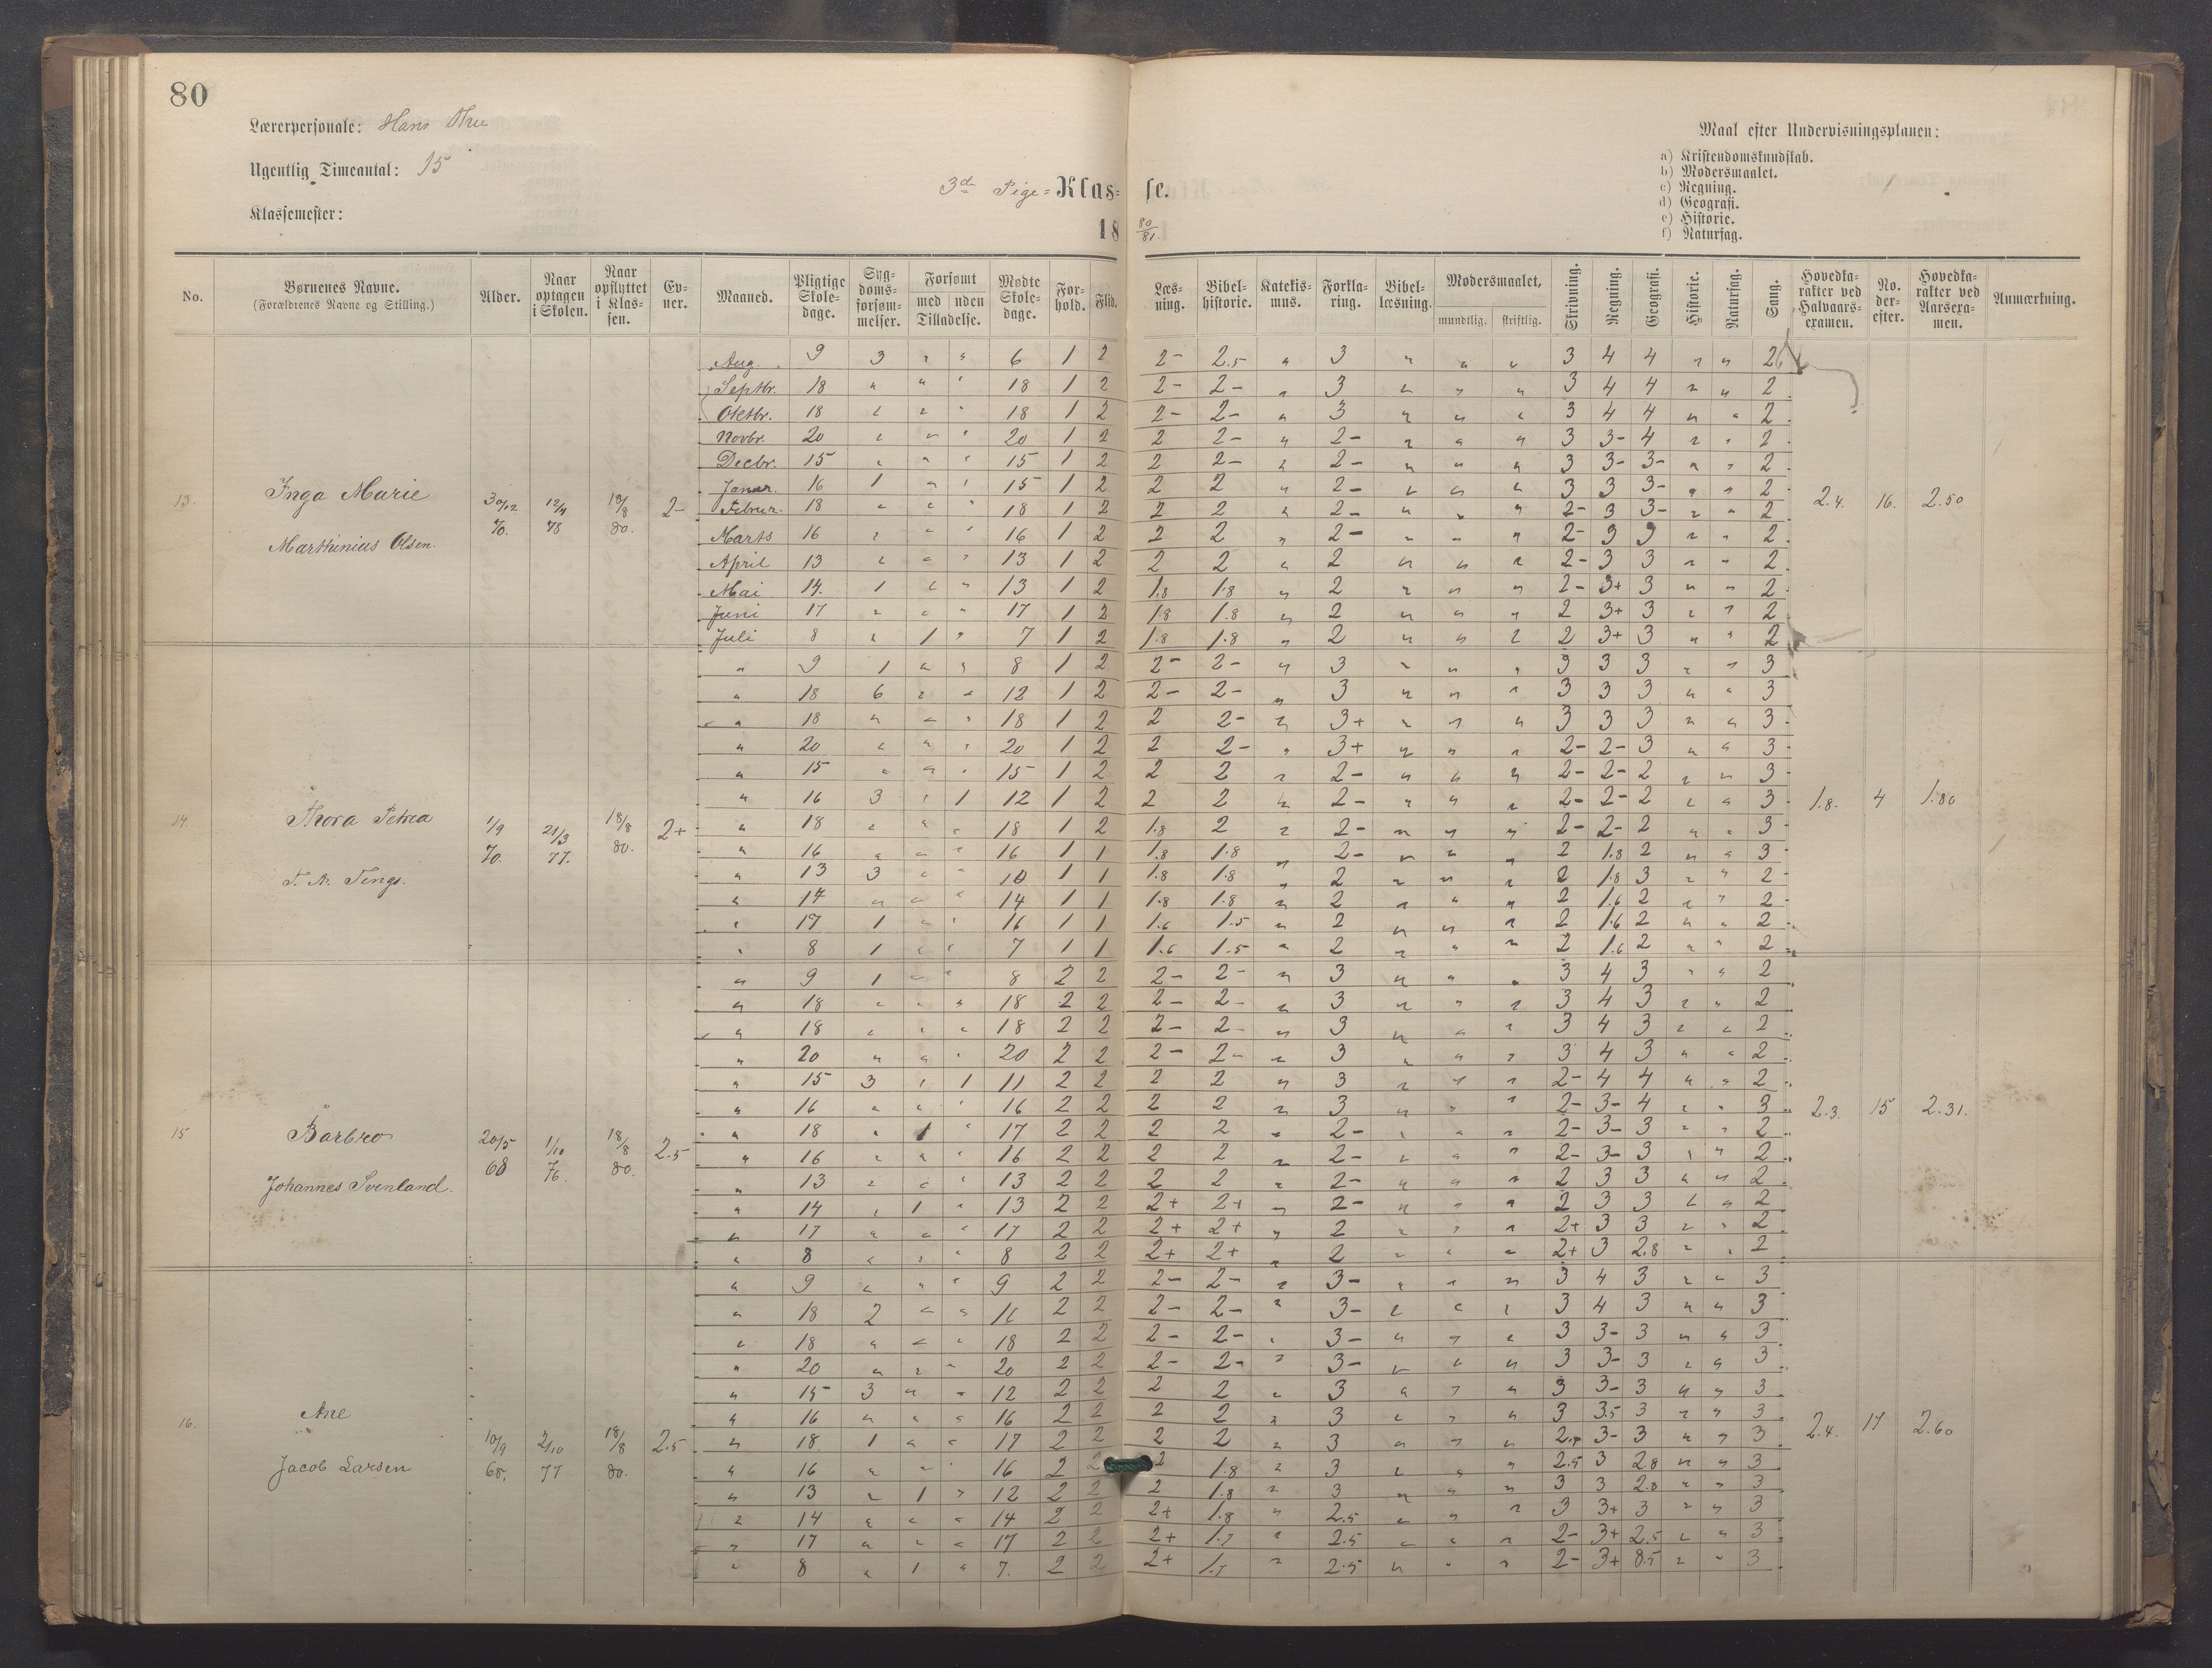 80
Lærerpersonale: Hans
Ugentlig Timeantal: 15
Klassemester:
3de Pige=Klas= se.
18 80/81.
Maal efter Undervisningsplanen:
a) Kristendomskundskab.
b) Modersmaalet.
c) Regning.
d) Geografi.
e) Historie.
f) Naturfag.
No. Børnenes Navne. (Forældrenes Navne og Stilling.) Alder. Naar optagen i Skolen. Naar opflyttet i Klas-sen. Ev-ner. Maaned. Pligtige Skole-dage. Syg-doms-forsøm-melser. Forsømt med uden Tilladelse. Mødte Skole-dage. For-hold. Flid. Læs-ning. Bibel-historie. Katekis-mus. Forkla-ring. Bibel-læsning. Modersmaalet, mundtlig. skriftlig. Skrivning. Regning. Geografi. Historie. Naturfag. Sang. Hovedka-rakter ved Halvaars-examen. No. der-efter. Hovedka-rakter ved Aarsexa-men. Anmærkning.
Aug. 9 3 " " 6 1 2 2- 2.5 " 3 " " " 3 4 4 " " 2
Septbr. 18 " " " 18 1 2 2- 2- " 3 " " " 3 4 4 " " 2
Oktbr. 18 " " " 18 1 2 2- 2- " 3 " " " 3 4 4 " " 2
Novbr. 20 " " " 20 1 2 2 2- " 2- " " " 3 3- 4 " " 2
Decbr. 15 " " " 15 1 2 2 2- " 2- " " " 3 3- 3- " " 2
13. Inga Marie 30/12 70. 12/4 78 18/8 80. 2- Januar. 16 1 " " 15 1 2 2 2 " 2- " " " 3 3 3- " " 2 2.4. 16. 2.50
Februar. 18 " " " 18 1 2 2 2 " 2- " " " 2- 3 3- " " 2
Marthinius Olsen. Marts 16 " " " 16 1 2 2 2 " 2- " " " 2- 3 3 " " 2
April 13 " " " 13 1 2 2 2 " 2 " " " 2- 3 3 " " 2
Mai 14. 1 " " 13 1 2 1.8 1.8 " 2 " " " 2- 3+ 3 " " 2
Juni 17 " " " 17 1 2 1.8 1.8 " 2 " " " 2 3+ 3 " " 2
Juli 8 " 1 " 7 1 2 1.8 1.8 " 2 " " " 2 3+ 3 " " 2
" 9 1 " " 8 1 2 2- 2- " 3 " " " 3 3 3 " " 3
" 18 6 " " 12 1 2 2- 2- " 3 " " " 3 3 3 " " 3
" 18 " " " 18 1 2 2 2- " 3+ " " " 3 3 3 " " 3
" 20 " " " 20 1 2 2 2- " 3+ " " " 2- 2- 3 " " 3
" 15 " " " 15 1 2 2 2 " 2- " " " 2- 2- 2 " " 3
" 16 3 " 1 12 1 2 2 2 " 2- " " " 2- 2- 2 " " 3
14 Thora Petrea 1/9 70. 21/3 77. 18/8 80. 2+ " 18 " " " 18 1 2 1.8 2 " 2- " " " 2- 2- 2 " " 3 1.8. 4 1.80
" 16 " " " 16 1 1 1.8 1.8 " 2- " " " 2 1.8 2 " " 3
T. A. Tengs. " 13 3 " " 10 1 1 1.8 1.8 " 2 " " " 2 1.8 3 " " 2
" 14 " " " 14 1 1 1.8 1.8 " 2 " " " 2 1.6 2 " " 2
" 17 1 " " 16 1 1 1.6 1.5 " 2 " " " 2 1.6 2 " " 2
" 8 1 " " 7 1 1 1.6 1.5 " 2 " " " 2 1.6 2 " " 2
" 9 1 " " 8 2 2 2- 2- " 3 " " " 3 4 3 " " 2
" 18 " " " 18 2 2 2- 2- " 3 " " " 3 4 3 " " 2
" 18 " " " 18 2 2 2- 2- " 3 " " " 3 4 3 " " 2
" 20 " " " 20 2 2 2- 2- " 3 " " " 3 4 3 " " 2
" 15 3 " 1 11 2 2 2 2 " 3 " " " 2- 4 4 " " 2
" 16 " " " 16 2 2 2 2 " 3 " " " 2- 3- 4 " " 3
15 Barbro 20/5 68 1/10 76. 18/8 80. 2.5 " 18 " 1 " 17 2 2 2 2 " 2- " " " 2- 3- 3 " " 2 2.3. 15 2.31.
" 16 " " " 16 2 2 2 2 " 2- " " " 2- 3- 3 " " 2
Johannes Svenland. " 13 " " " 13 2 2 2 2 " 2- " " " 2 3 3 " " 2
" 14 " 1 " 13 2 2 2+ 2+ " 2- " " " 2 3 3 " " 2
" 17 " " " 17 2 2 2+ 2+ " 2 " " " 2+ 3 3 " " 2
" 8 " " " 8 2 2 2+ 2+ " 2 " " " 2+ 3 2.8 " " 2
" 9 " " " 9 2 2 2- 2- " 3- " " " 3 4 3 " " 3
" 18 2 " " 16 2 2 2- 2- " 3- " " " 3 4 3 " " 3
" 18 " " " 18 2 2 2- 2- " 3- " " " 3 3- 3 " " 3
" 20 " " " 20 2 2 2- 2- " 3- " " " 3 3- 3 " " 3
" 15 3 " " 12 2 2 2 2 " 3 " " " 3 3- 3 " " 3
" 16 " " " 16 2 2 2 2 " 3 " " " 3 3.5 3 " " 3
16. Ane 10/9 68. 2/10 77 18/8 80. 2.5 " 18 1 " " 17 2 2 2 2 " 3 " " " 3- 3 " " 3 2.4. 17 2.60
Jacob Larsen " 16 " " " 16 2 2 2 1.8 " 3 " " " 2.5 3 2.8 " " 3
" 13 " 1 " 12 2 2 2 1.8 " 3 " " " 3 3 2.8 " " 3
" 14 " " " 14 2 2 2+ 1.8 " 2.5 " " " 3 3+ 3 " " 3
" 17 " " " 17 2 2 2+ 1.7 " 2.5 " " " 2- 3+ 2.5 " " 3
" 8 " 1 " 7. 2 2 2+ 1.7 " 2.5 " " " 2- 3+ " " 3